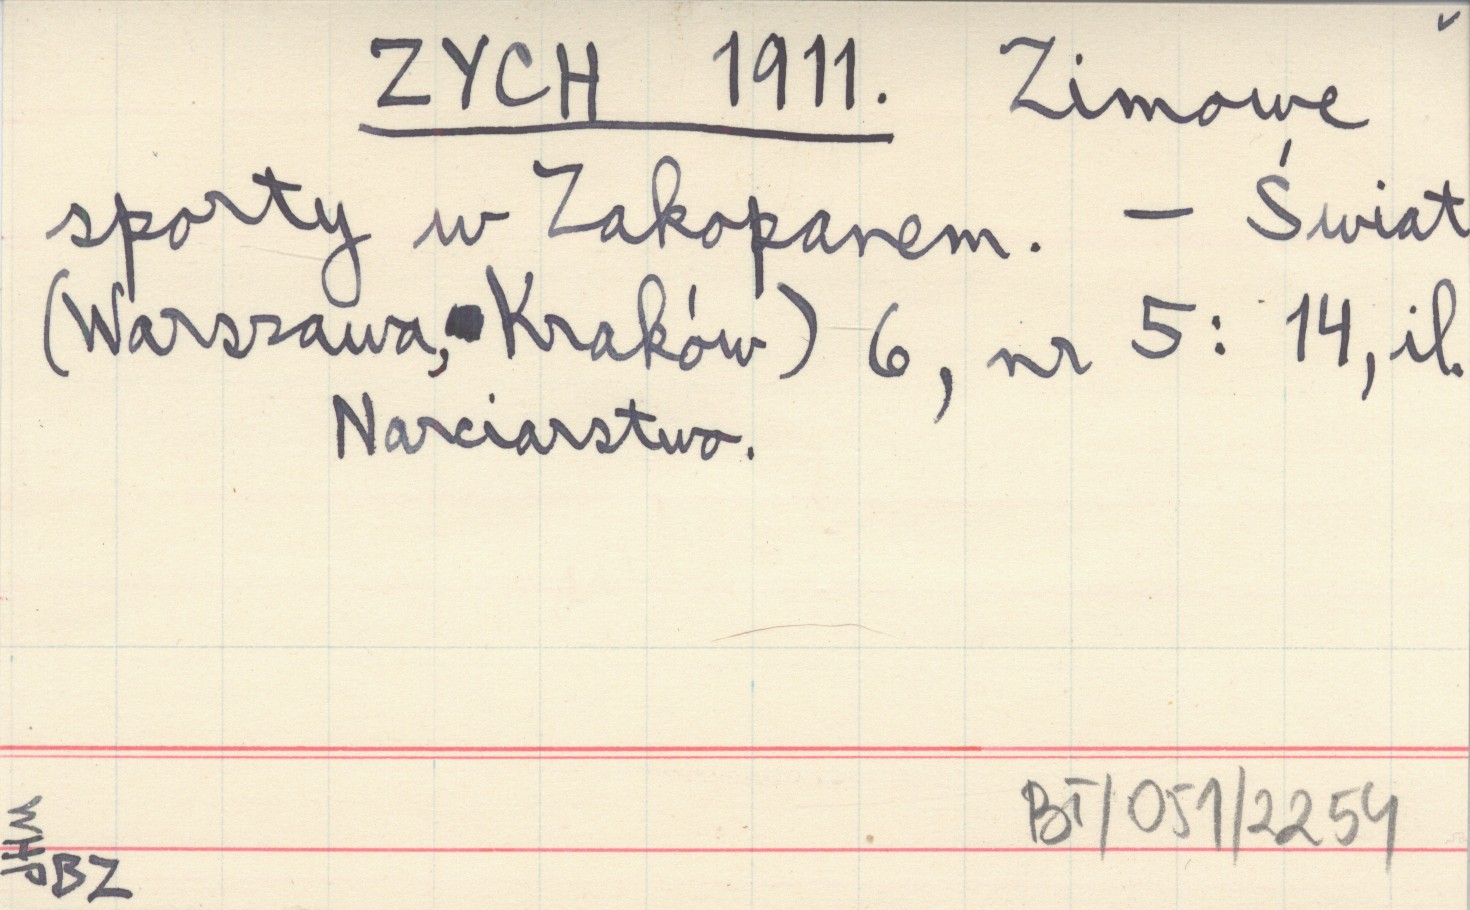 ZYCH 1911. Zimowe
sporty w Zakopanem. — Świat
(Warszawa, Kraków) 6, nr 5: 14, il.
Narciarstwo.
BT/051/2254
WHP
BZ